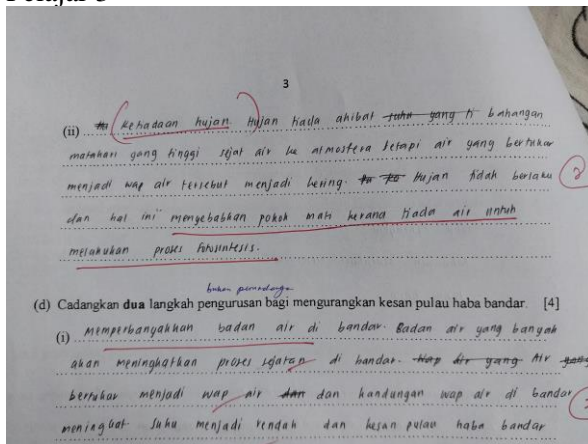 3
(ii) ketiadaan hujan. Hujan tiada akibat bahangan
matahari yang tinggi sejat air ke atmosfera tetapi air yang bertukar
menjadi wap air tersebut menjadi kering. Hujan tidak berlaku
dan hal ini menyebabkan pokok mati kerana tiada air untuk
melakukan proses fotosintesis.
2
bukan perundangan
(d) Cadangkan dua langkah pengurusan bagi mengurangkan kesan pulau haba bandar. [4]
(i) Memperbanyakkan badan air di bandar. Badan air yang banyak
akan meningkatkan proses sejatan di bandar. Air
bertukar menjadi wap air dan kandungan wap air di bandar
meningkat suhu menjadi rendah dan kesan pulau haba bandar